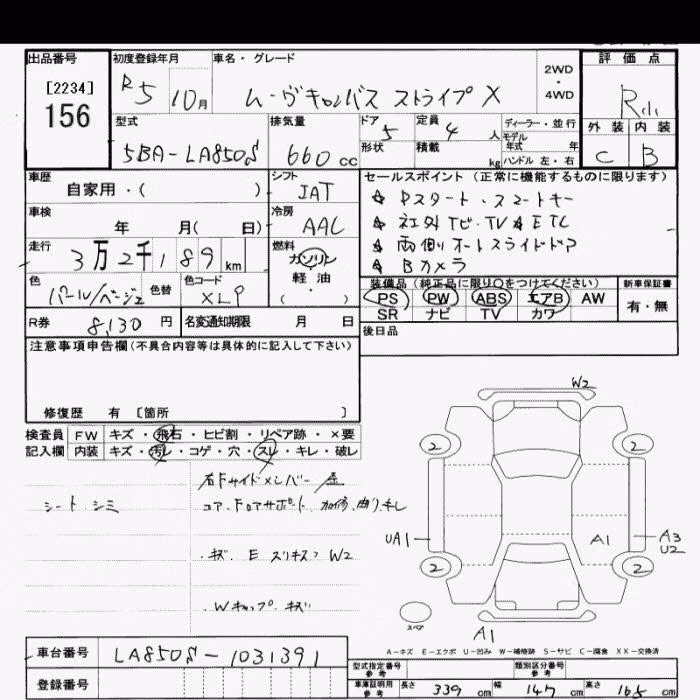 出品番号 初度登録年月 車名・グレード 評価点
[2234]
156
R5 10月 ム-ヴキャンバス ストライプ X
2WD
・
4WD
外装 内装
C B
型式 排気量 ドア 5 定員 4人 ディーラー・並行
モデル年式 年
5BA-LA850S 660cc 形状 積載 kg ハンドル 左・右
車歴 シフト セールスポイント (正常に機能するものに限ります)
自家用・( ) IAT ☆ Pスタート・スマートキー
車検 冷房 ☆ 社外ナビ・TV ☆ ETC
年 月( 日) AAC ☆ 両側オートスライドドア
走行 燃料 ☆ Bカメラ
3万2千189km ガソリン
軽油
・( )
色 色替 色コード 装備品 (純正品に限り○をつけてください) 新車保証書
パール/ベージュ XLP PS PW ABS エアB AW 有・無
SR ナビ TV カワ
R券 8,130円 名変通知期限 月 日 後日品
注意事項申告欄(不具合内容等は具体的に記入して下さい)
修復歴 有 [箇所 ]
検査員 FW キズ・飛石・ヒビ割・リペア跡・×要
記入欄 内装 キズ・汚レ・コゲ・穴・スレ・キレ・破レ
右Fサイドメンバー/歪
シート シミ コア.Fロアサポート 加修.曲り.キレ
・キズ E スリキズ? W2
・Wキャップ キズ
W2
2 2
UA1 A1 A3
U2
2 2
スペア
A1
A-キズ E-エクボ U-凹み W-補修跡 S-サビ C-腐食 XX-交換済
車台番号 LA850S-1031391
登録番号
型式指定番号 参考 類別区分番号 参考
車庫証明用 参考 長さ 339cm 幅 147cm 高さ 165cm